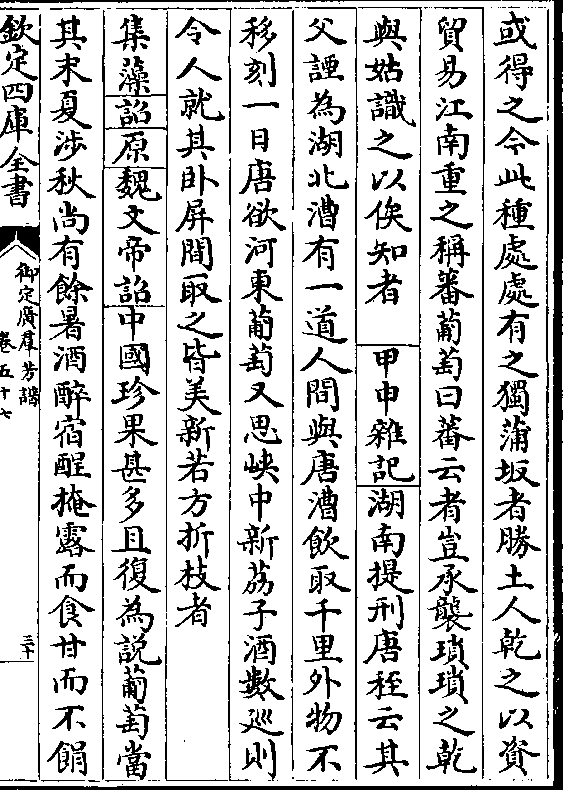 或得之今此種處處有之獨蒲坂者勝土人乾之以資
貿易江南重之稱番葡萄曰蕃云者豈承襲瑣瑣之乾
與姑識之以俟知者 甲申雜記湖南提刑唐秷云其
父諲為湖北漕有一道人間與唐漕飲取千里外物不
移刻一日唐欲河東葡萄又思峽中新荔子酒數廵則
令人就其卧屏間取之皆美新若方折枝者
集藻詔原魏文帝詔中國珍果甚多且復為説葡萄當
其末夏涉秋尚有餘暑酒醉宿酲掩露而食甘而不䬼
欽定四庫全書
御定廣羣芳譜
卷五十七
三十